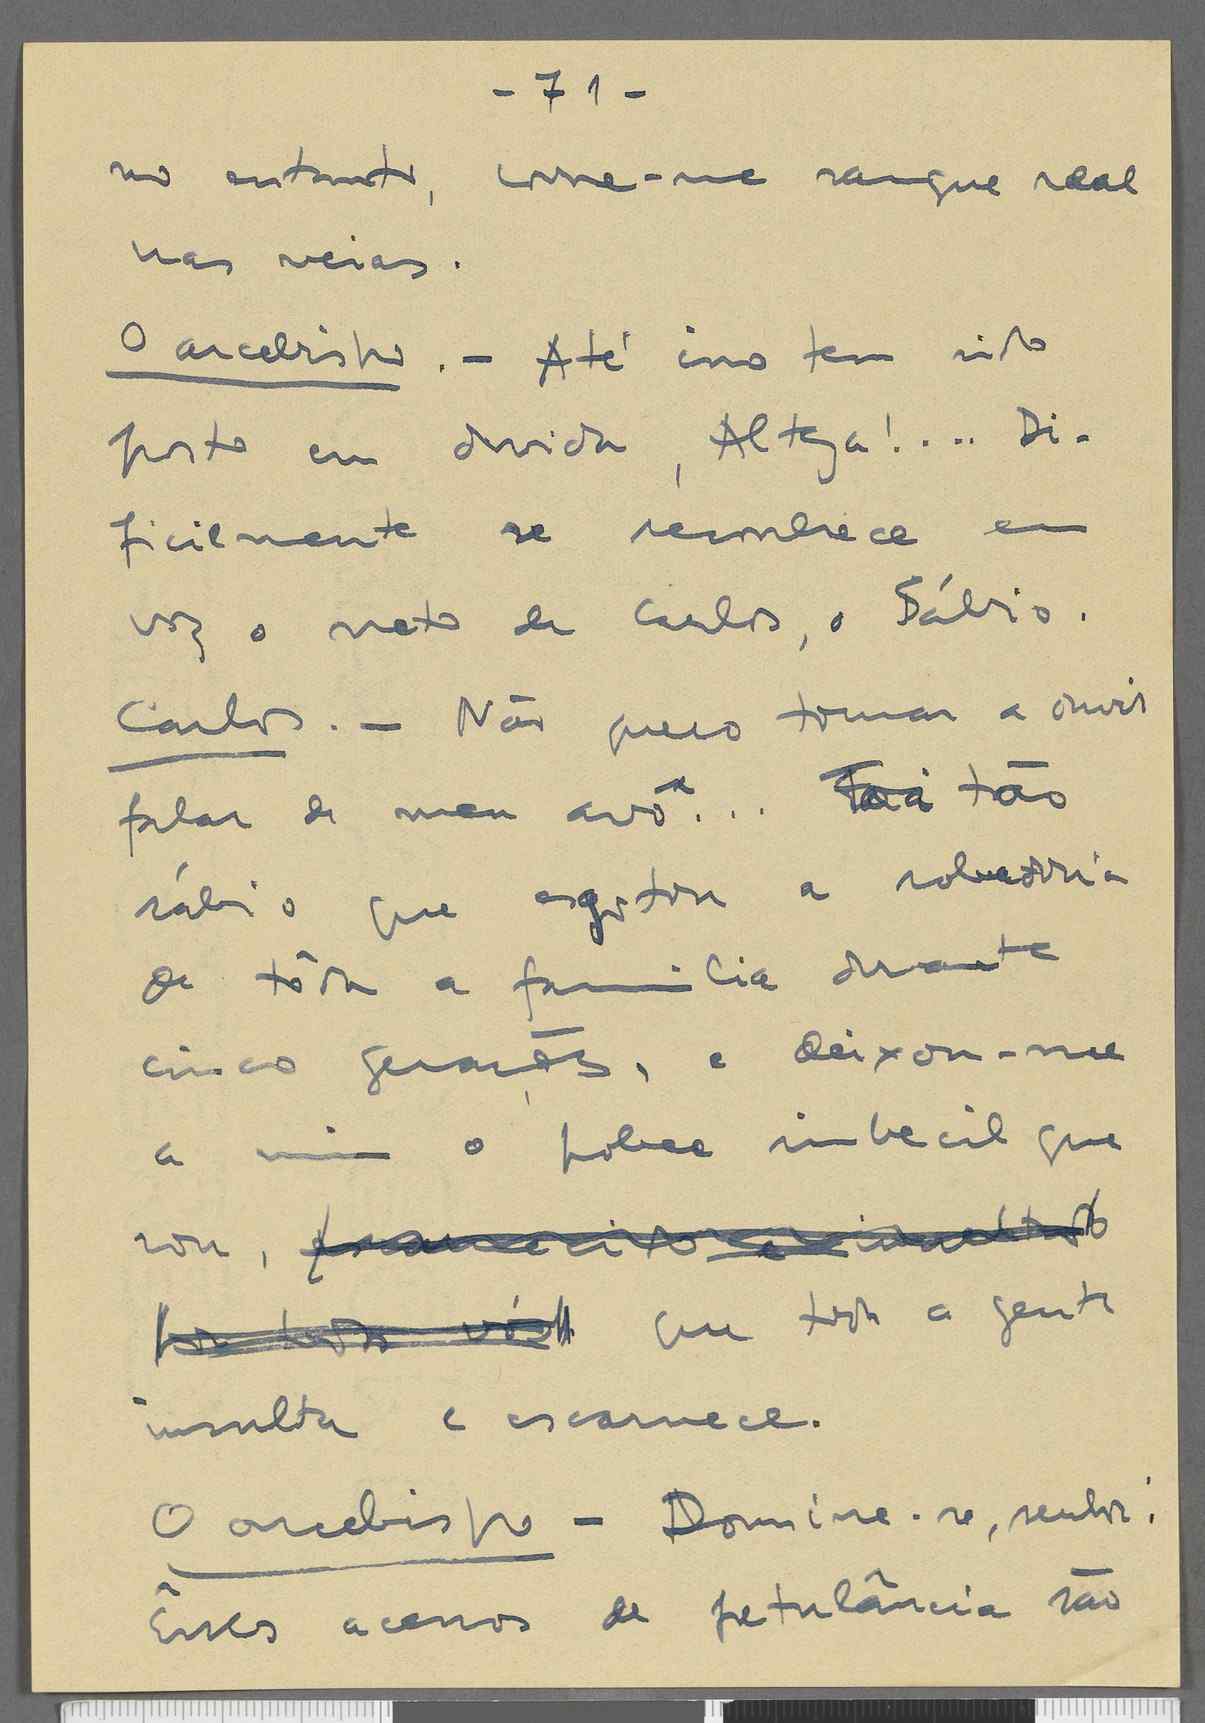 - 71 -
no entanto, corre-me sangue real
nas veias.
O arcebispo. - Até isso tem sido
posto em duvida, Alteza!.... Di-
ficilmente se reconhece em
vós o neto de Carlos, o Sábio.
Carlos. - Não quero tornar a ouvir
falar de meu avô... Foi tão
sábio que esgotou a sabedoria
de tôda a familia durante
cinco gerações, e deixou-me
a mim o pobre imbecil que
sou, escarnecido e insultado
por todos vós!! que toda a gente
insulta e escarnece.
O arcebispo - Domine-se, senhor!
Êsses acenos de petulância são